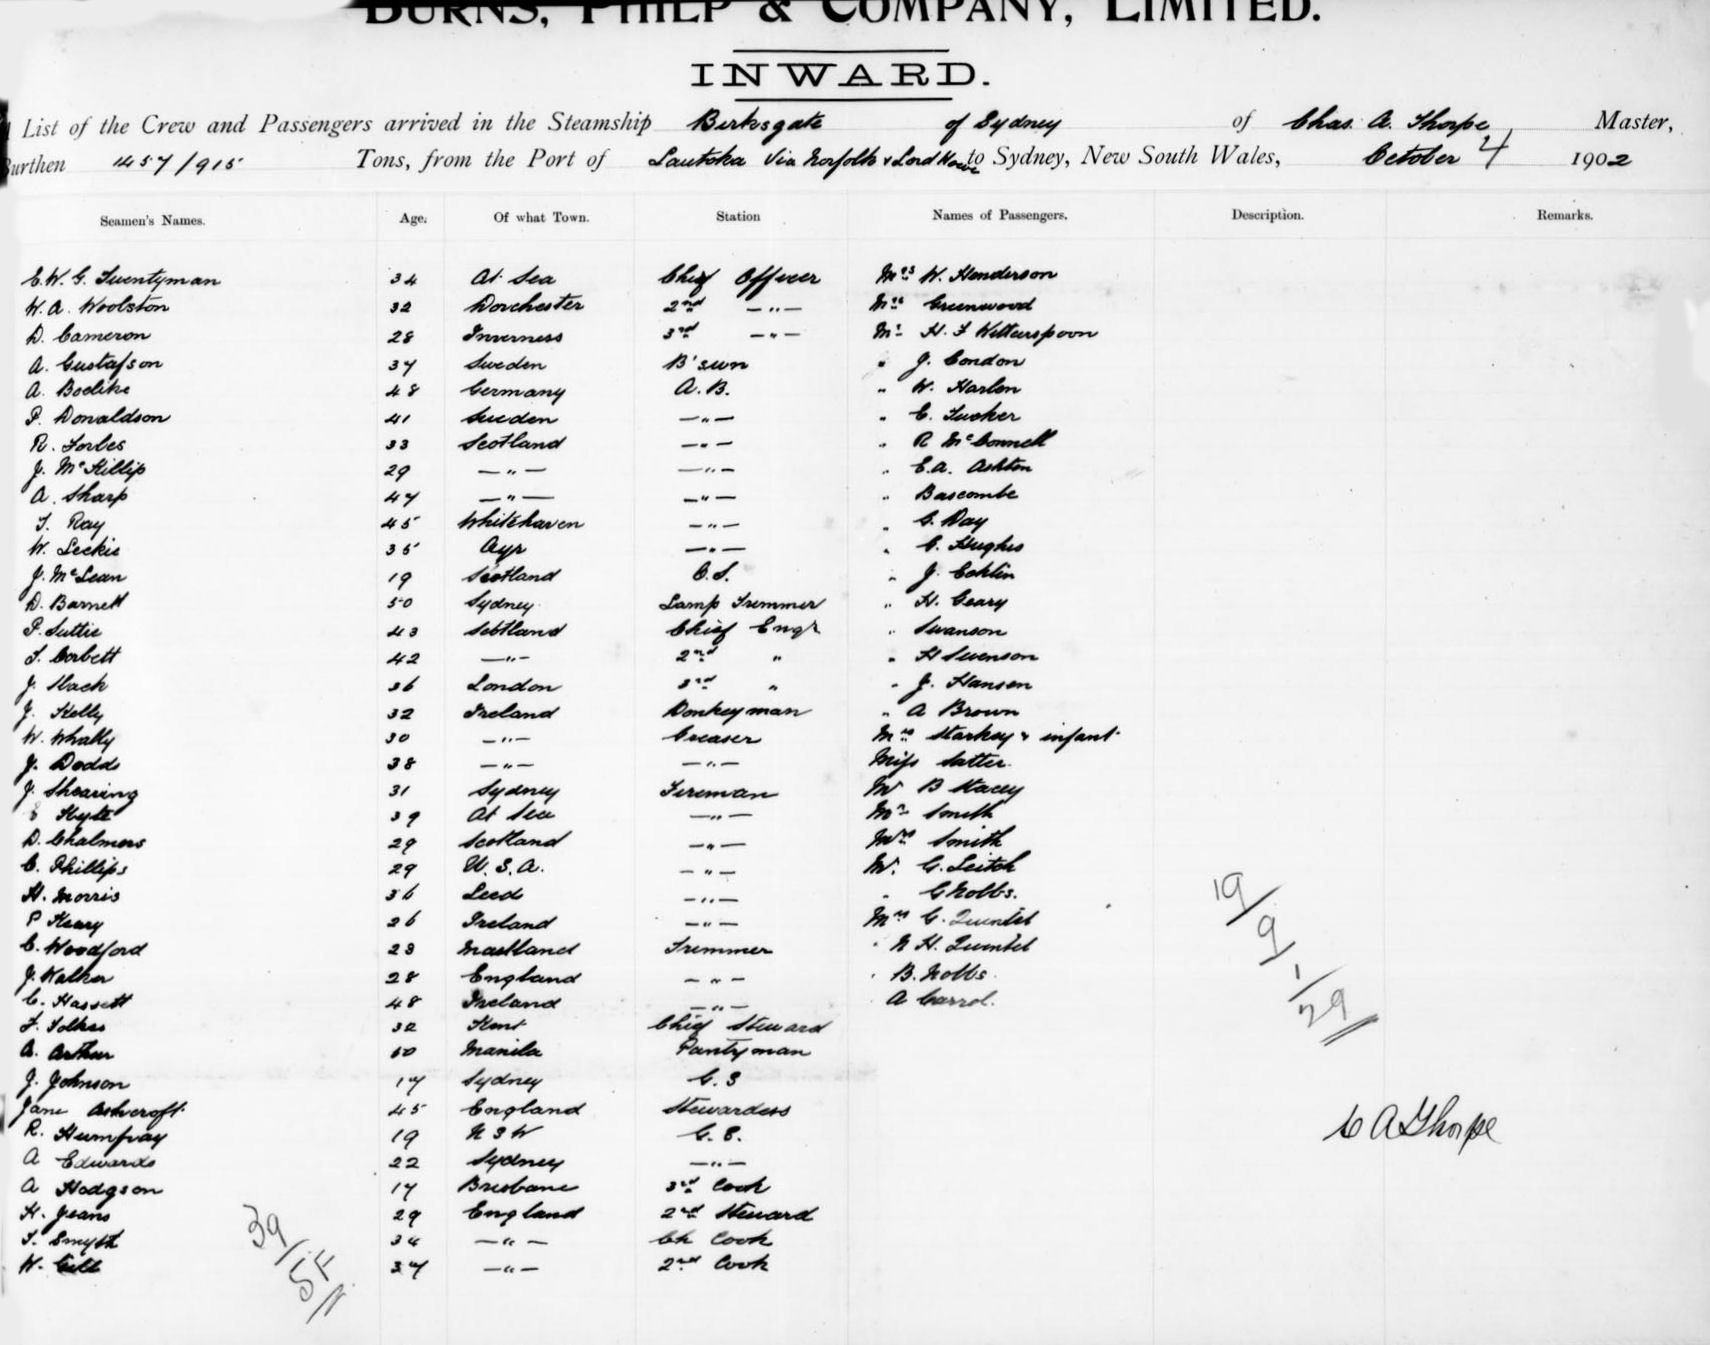 BURNS, PHILP & COMPANY, LIMITED.
INWARD.
List of the Crew and Passengers arrived in the Steamship Birksgate of Sydney of Chas. A. Thorpe Master,
Burthen 1457/915 Tons, from the Port of Lautoka Via Norfolk & Lord Howe to Sydney, New South Wales, October 4 1902
Seamen's Names. Age. Of what Town. Station Names of Passengers. Description. Remarks.
E. W. G. Twentyman 34 At Sea Chief Officer Mrs W. Henderson
W. A. Woolston 32 Dorchester 2nd —"— Mrs Greenwood
D. Cameron 28 Inverness 3rd —"— Mr H. S Witterspoon
A. Gustafson 37 Sweden B'sun " J. Condon
A. Boelike 48 Germany A. B. " W. Harlen
P. Donaldson 41 Sweden —"— " E. Tucker
R. Forbes 33 Scotland —"— " R McConnell
J. McKillip 29 —"— —"— " E. A. Ashton
A. Sharp 47 —"— —"— " Bascombe
T. Ray 45 Whitehaven —"— " G. Day
W. Leckie 35 Ayr —"— " C. Hughes
J. McLean 19 Scotland O. S. " J. Coklin
D. Barnett 50 Sydney Lamp Trimmer " H. Geary
P. Suttie 43 Scotland Chief Engr " Swanson
T. Corbett 42 —"— 2nd " " H Swenson
J. Mack 36 London 3rd " " J. Hansen
J. Kelly 32 Ireland Donkeyman " A Brown
W. Whally 30 —"— Greaser Mrs Starkey & infant
J. Dodds 38 —"— —"— Miss Satter
J. Shearing 31 Sydney Fireman Mr B Stacey
Hyte 39 At Sea —"— Mr Smith
D. Chalmers 29 Scotland —"— Mrs Smith
C. Phillips 29 U. S. A. —"— Mr. G. Leitch
H. Morris 36 Leed —"— " G Nobbs.
P Keary 26 Ireland —"— Mrs G. Quintel
C. Woodford 23 Maitland Trimmer " N H. Quintel
J. Walker 28 England —"— " B. Nobbs
C. Hassett 48 Ireland —"— A Carrol.
F. Folkes 32 Kent Chief Steward
A. Arthur 50 Manila Pantryman
J. Johnson 17 Sydney G. S
Jane Ashcroft 45 England Stewardess
R. Humfray 19 N S W G. S.
A Edwards 22 Sydney —"—
A Hodgson 17 Brisbane 3rd Cook
H. Jeans 29 England 2nd Steward
T. Smyth 34 —"— Ch Cook
W. Gill 37 —"— 2nd Cook
19/9/29
C A Thorpe
39/